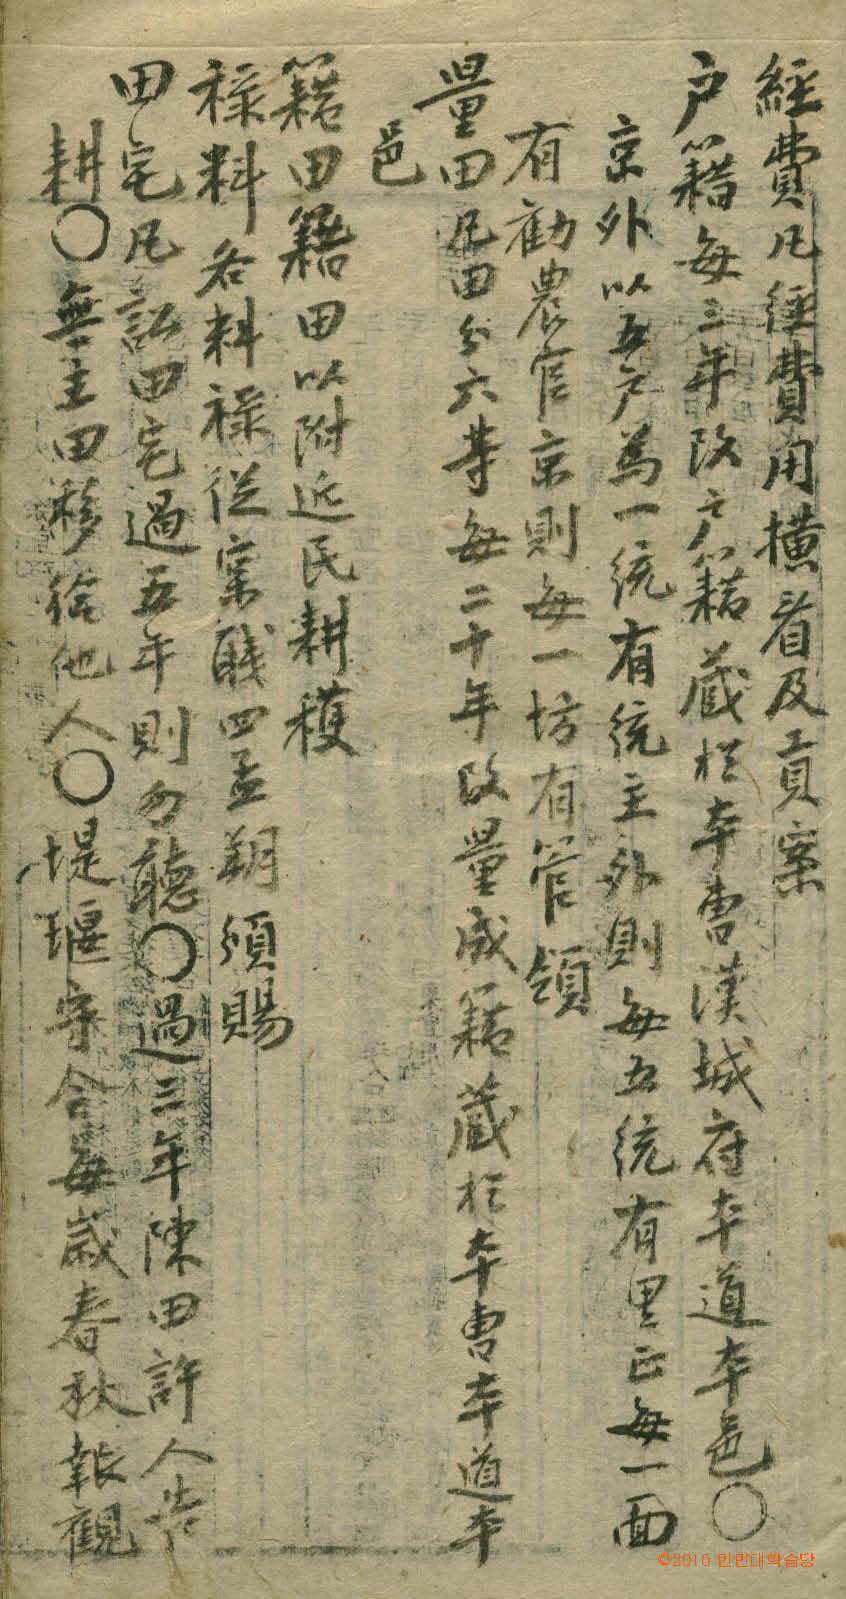 經費凡經費用橫看及貢案
户籍每三年改户籍藏扵本曹漢城府本道本邑〇
京外以五户爲一統有統主外則每五統有里正每一面
有勸農官京則每一坊有管領
量田凡田分六等每二十年改量成籍藏扵本曹本道本
邑
籍田籍田以附近民耕穫
祿料各料祿從實職四孟朔頒賜
田宅凡訟田宅過五年則勿聽〇過三年陳田許人告
耕〇無主田移給他人〇堤堰守令每歲春秋報觀
©2010 민민대학습당